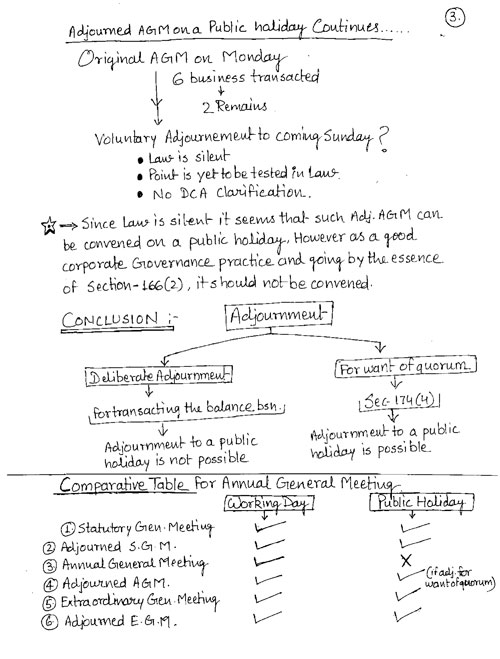 3.
Adjourned AGM on a Public holiday Continues......
Original AGM on Monday
6 business transacted
2 Remains
Voluntary Adjournement to coming Sunday?
• Law is silent
• Point is yet to be tested in Law.
• No DCA Clarification.
☆ → Since Law is silent it seems that such Adj. AGM can
be convened on a public holiday. However as a good
corporate Governance practice and going by the essence
of Section-166(2), it should not be convened.
CONCLUSION :-
Adjournment
Deliberate Adjournment
For want of quorum
for transacting the balance bsn.
Sec-174(4)
Adjournment to a public
holiday is not possible
Adjournment to a public
holiday is possible.
Comparative Table for Annual General Meeting
Working Day Public Holiday
① Statutory Gen. Meeting ✓ ✓
② Adjourned S.G.M. ✓ ✓
③ Annual General Meeting ✓ X
④ Adjourned AGM. ✓ ✓ (if adj. for
want of quorum)
⑤ Extraordinary Gen. Meeting ✓ ✓
⑥ Adjourned E.G.M. ✓ ✓